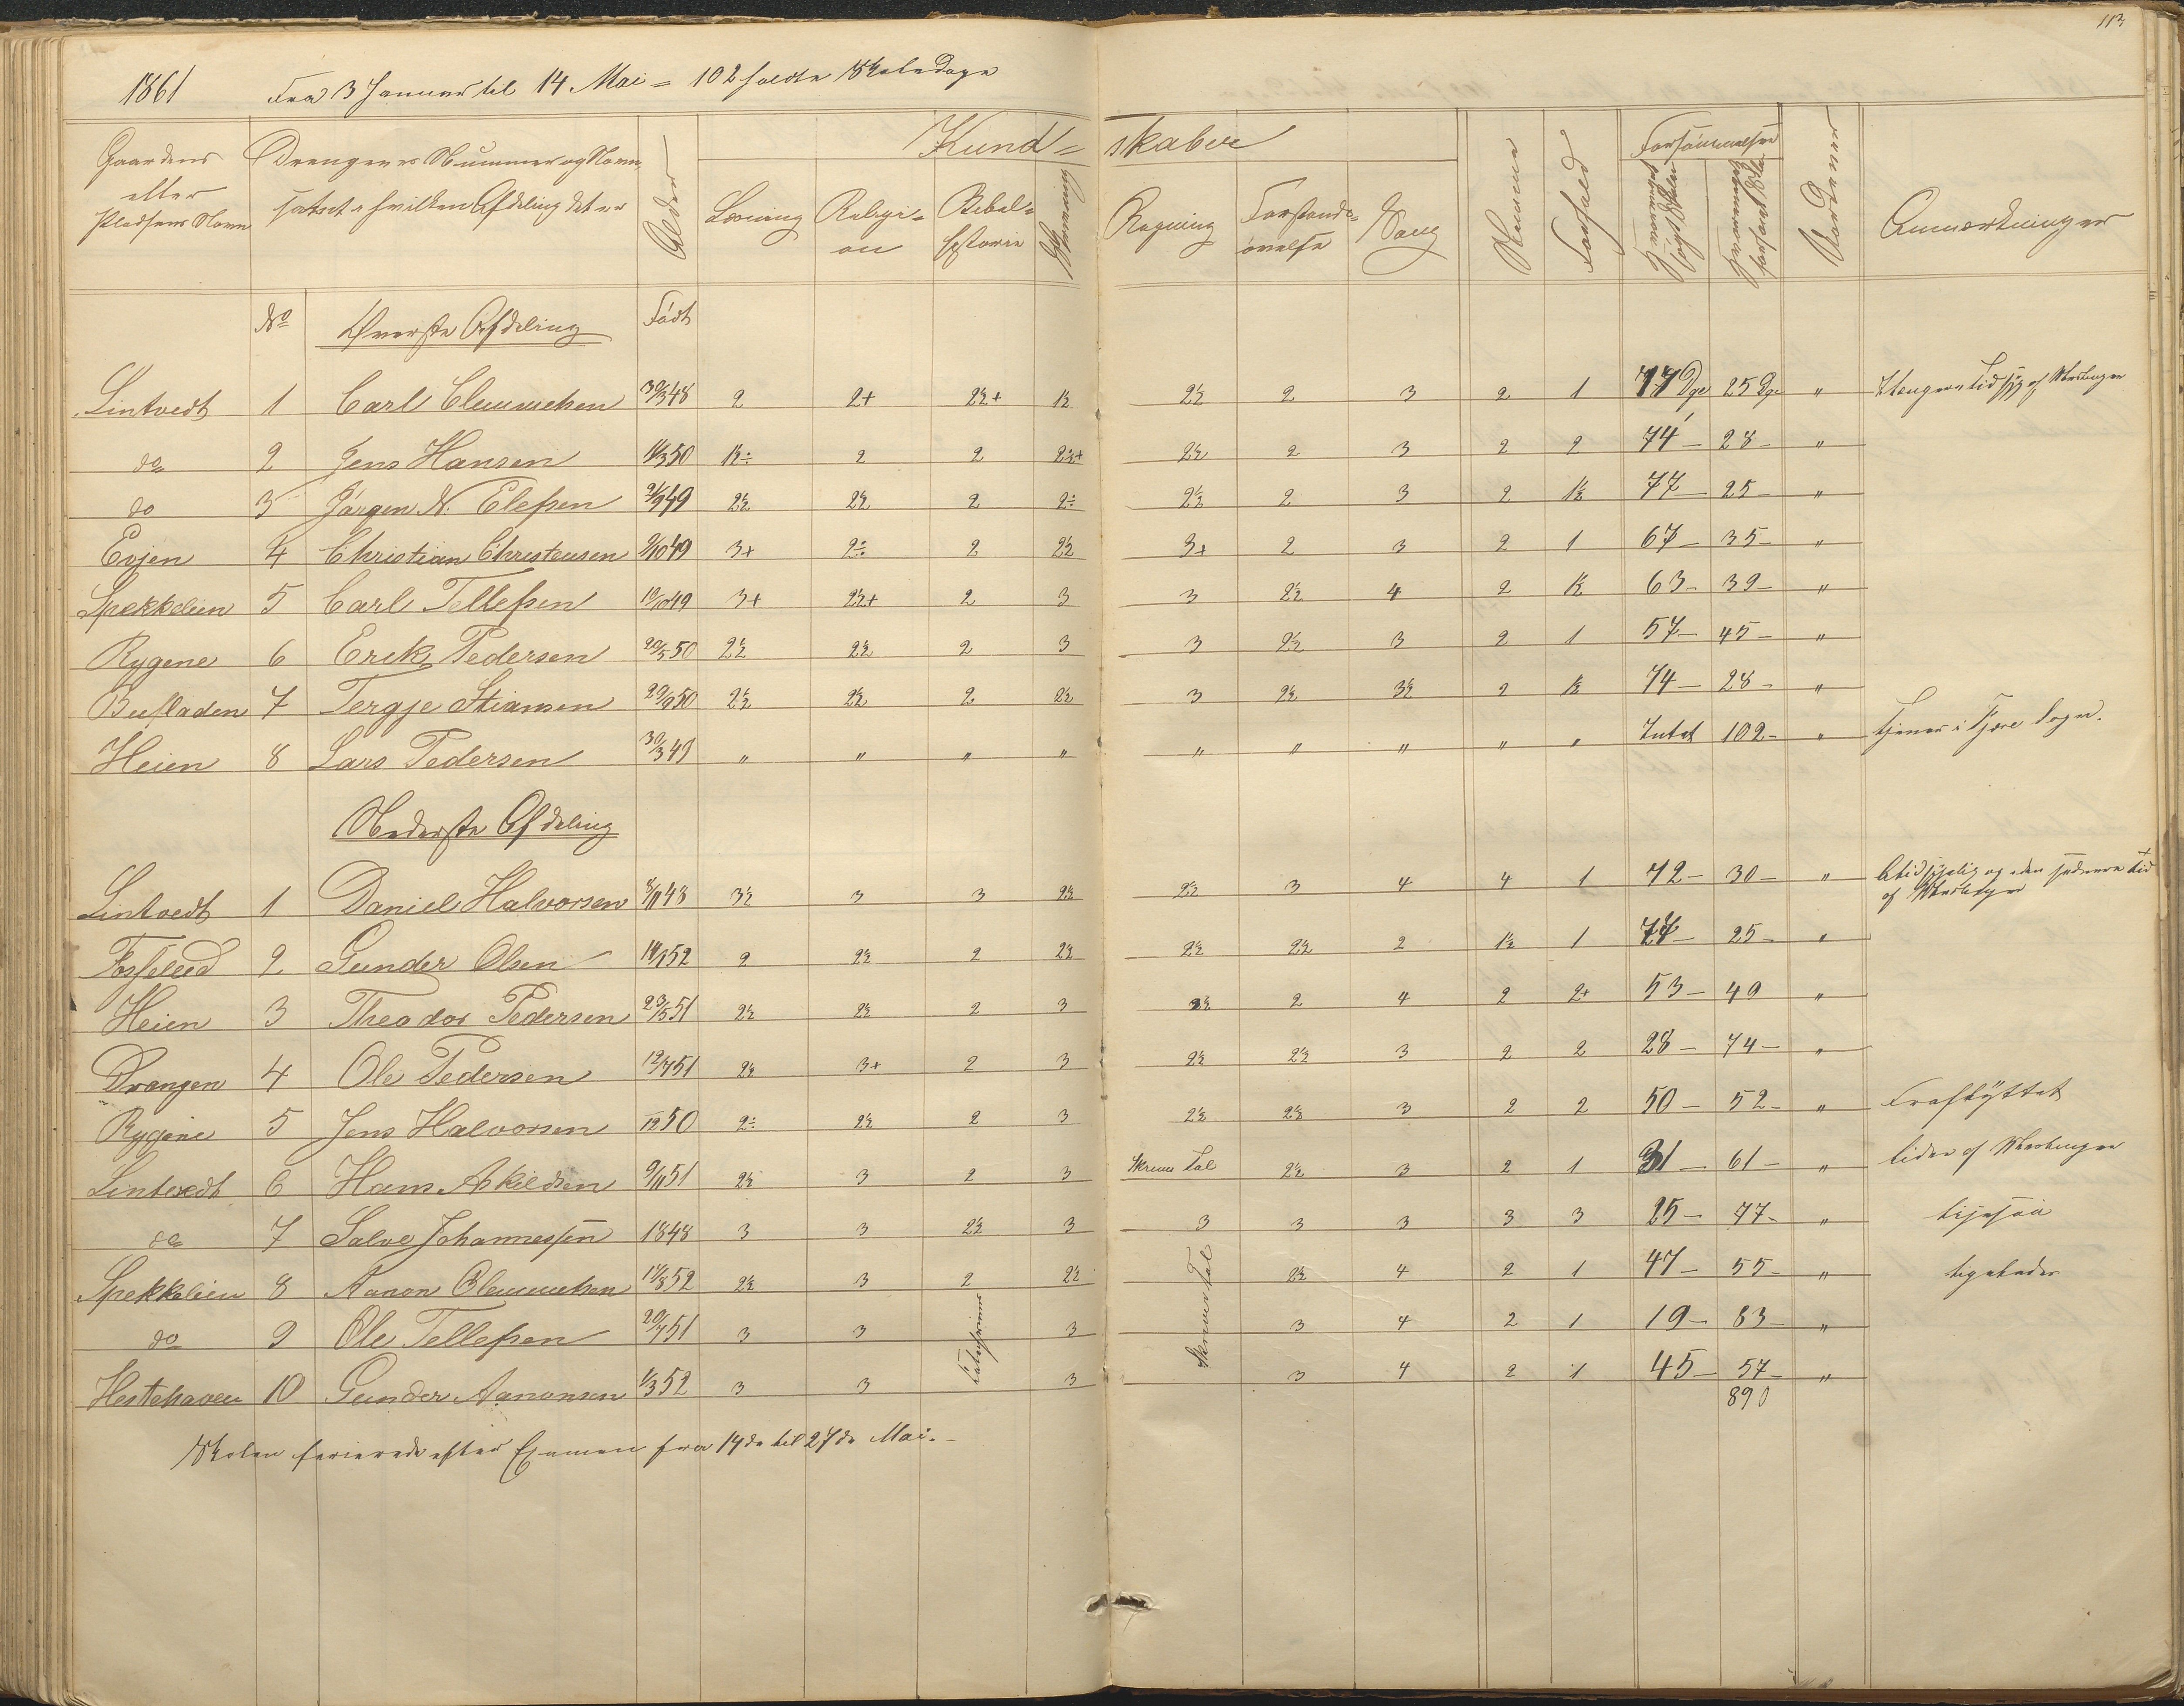 113
1861 Fra 3 Januar til 14 Mai = 102 holdte Skoledage
Gaardens eller Pladsens Navn
Drengenes Nummer og Navn, samt i hvilken Afdeling det er
Alder
Kund= skaber
Læsning Religi= on Bibel= historie Skrivning Regning Forstands= øvelse Sang
Nemme
Forhold
Forsømmelser
Værdener
Anmærkninger
No Øverste Afdeling Født
Lintvedt 1 Carl Clemmetsen 30/3 48 2 2+ 2½+ 1½ 2½ 2 3 2 1 77 Dge 25 Dge "
do 2 Jens Hansen 11/3 50 1½÷ 2 2 2½+ 2½ 2 3 2 2 74 - 28 - "
do 3 Jørgen N. Elefsen 21/9 49 2½ 2½ 2 2÷ 2½ 2 3 2 1½ 77 - 25 - "
Evjen 4 Christian Christensen 9/10 49 3+ 2÷ 2 2½ 3+ 2 3 2 1 67 - 35 - "
Spekkelien 5 Carl Tellefsen 10/10 49 3+ 2½+ 2 3 3 2½ 4 2 1½ 63 - 39 - "
Rygene 6 Erik Pedersen 20/5 50 2½ 2½ 2 3 3 2½ 3 2 1 57 - 45 - "
Bufladen 7 Tergje Stiansen 29/9 50 2½ 2½ 2 2½ 3 2½ 3½ 2 1½ 74 - 28 - "
Heien 8 Lars Pedersen 30/3 49 " " " " " " " " " Intet 102 - " tjener i Fjære Sogn.
Nederste Afdeling
Lintvedt 1 Daniel Halvorsen 8/11 48 3½ 3 3 2½ 2½ 3 4 4 1 72 - 30 - "
2 Gunder Olsen 14/1 52 2 2½ 2 2½ 2½ 2½ 2 1½ 1 77 - 25 - "
Heien 3 Theodor Pedersen 23/5 51 2½ 2½ 2 3 3½ 2 4 2 2+ 53 - 49 "
Drangen 4 Ole Pedersen 12/4 51 2½ 3+ 2 3 2½ 2½ 3 2 2 28 - 74 - "
Rygene 5 Jens Halvorsen 50 2÷ 2½ 2 3 2½ 2½ 3 2 2 50 - 52 - " Fraflyttet
Lintvedt 6 Hans Askildsen 9/11 51 2½ 3 2 3 Skriver Tal 2½ 3 2 1 31 - 61 - "
do 7 Salve Johannessen 1848 3 3 2½ 3 3 3 3 3 3 25 - 77 - " ligesaa
Spekkelien 8 Aanon Clemmetsen 17/8 52 2½ 3 2 2½ Skriver Tal 2½ 4 2 1 47 - 55 - " ligeledes
do 9 Ole Tellefsen 20/4 51 3 3 3 3 4 2 1 19 - 83 - "
Hestehaven 10 Gunder Aanonsen 1/3 52 3 3 3 3 4 2 1 45 - 57 - "
890
Skolen ferierede efter Examen fra 14de til 27de Mai. -